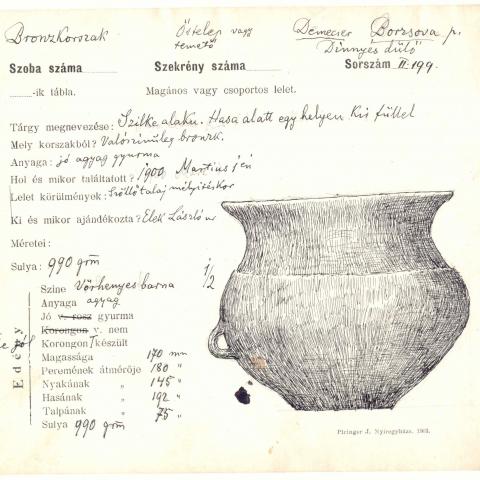 Bronzkorszak Őstelep vagy temető Demecser Borzsova p. Dinnyés dülő
Szoba száma Szekrény száma Sorszám II. 199.
-ik tábla. Magános vagy csoportos lelet.
Tárgy megnevezése: Szilke alaku. Hasa alatt egy helyen kis füllel
Mely korszakból? Valószinüleg bronzk.
Anyaga: jó agyag gyurma
Hol és mikor találtatott? 1900 Martius
Lelet körülmények: Szöllőtalaj mélyitéskor
Ki és mikor ajándékozta? Elek László ur
Méretei:
Sulya: 990 grm
1/2
Edény
Szine Vörhenyes barna
Anyaga agyag
Jó v. rosz gyurma
Korongon v. nem
jól
Korongon készült
Magassága 170 mm
Peremének átmérője 180 "
Nyakának " 145 "
Hasának " 192 "
Talpának " 75 "
Sulya 990 grm
Piringer J. Nyiregyháza. 1903.